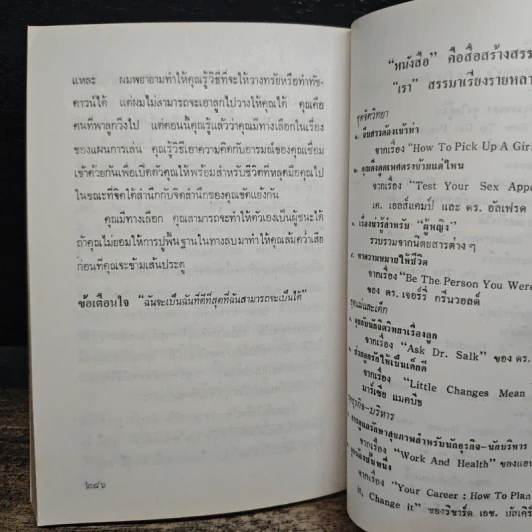 แหละ ผมพยายามทำให้คุณรู้วิธีที่จะให้วางทรัยหรือทำทัช-
ดาวน์ได้ แต่ผมไม่สามารถจะเอาลูกไปวางให้คุณได้ คุณคือ
คนที่พาลูกวิ่งไป แต่ตอนนี้คุณรู้แล้วว่าคุณมีทางเลือกในเรื่อง
ของแผนการเล่น คุณรู้วิธีเอาความคิดกับอารมณ์ของคุณเชื่อม
เข้าด้วยกันเพื่อเปิดตัวคุณให้พร้อมสำหรับชีวิตที่หลุดมือคุณไป
ในขณะที่จิตใต้สำนึกกับจิตสำนึกของคุณขัดแย้งกัน
คุณมีทางเลือก คุณสามารถจะทำให้ตัวเองเป็นผู้ชนะได้
ถ้าคุณไม่ยอมให้การปูพื้นฐานในทางลบมาทำให้คุณล้มคว่ำเสีย
ก่อนที่คุณจะข้ามเส้นประตู
ข้อเตือนใจ “ฉันจะเป็นฉันที่ดีที่สุดที่ฉันสามารถจะเป็นได้”
๒๘๖
“หนังสือ” คือสื่อสร้างสรร
“เรา” สรรมาเรียงรายหลา
ชุดจิตวิทยา
จีบสาวต้องเข้าท่า
จากเรื่อง “How To Pick Up A Girl
คุณดึงดูดเพศตรงข้ามแค่ไหน
จากเรื่อง “Test Your Sex Appe
เค. เอลส์แคมป์ และ ดร. อัลเฟรด
เรื่องน่ารู้สำหรับ “ผู้หญิง”
รวบรวมจากนิตยสารต่าง ๆ
หาความหมายให้ชีวิต
จากเรื่อง “Be The Person You Were
ของ ดร. เจอร์รี่ กรีนวอลด์
คุยกับนักจิตวิทยาเรื่องลูก
จากเรื่อง “Ask Dr. Salk” ของ ดร.
ช่วยลูกรักให้เป็นเด็กดี
จากเรื่อง “Little Changes Mean
มาร์เซีย แมคบีช
ธุรกิจ-บริหาร
รักษาสุขภาพสำหรับนักธุรกิจ-นักบริหาร
จากเรื่อง “Work And Health” ของแอน
จากเรื่อง “Your Career : How To Plan
It, Change it” ของริชาร์ด เอช.